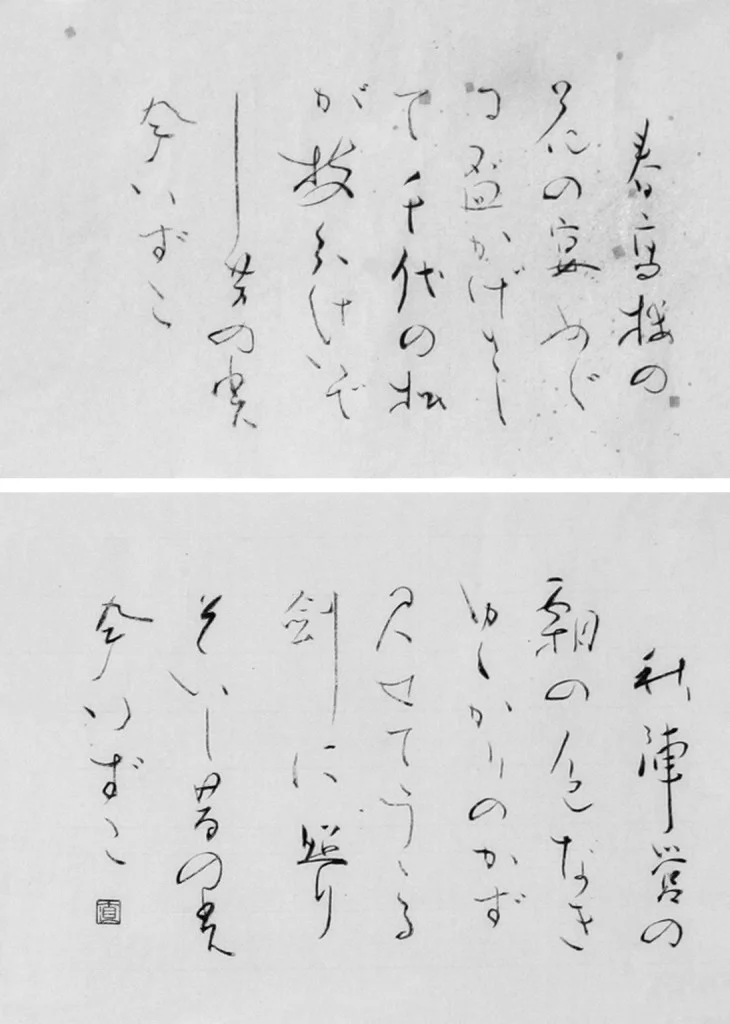 春高楼の
花の宴めぐ
る盃かげさし
て千代の松
が枝わけいで
し昔の光
今いずこ
秋陣営の
霜の色なき
ゆくかりのかず
見せてうゝる
剣に照り
そいし昔の光
今いずこ